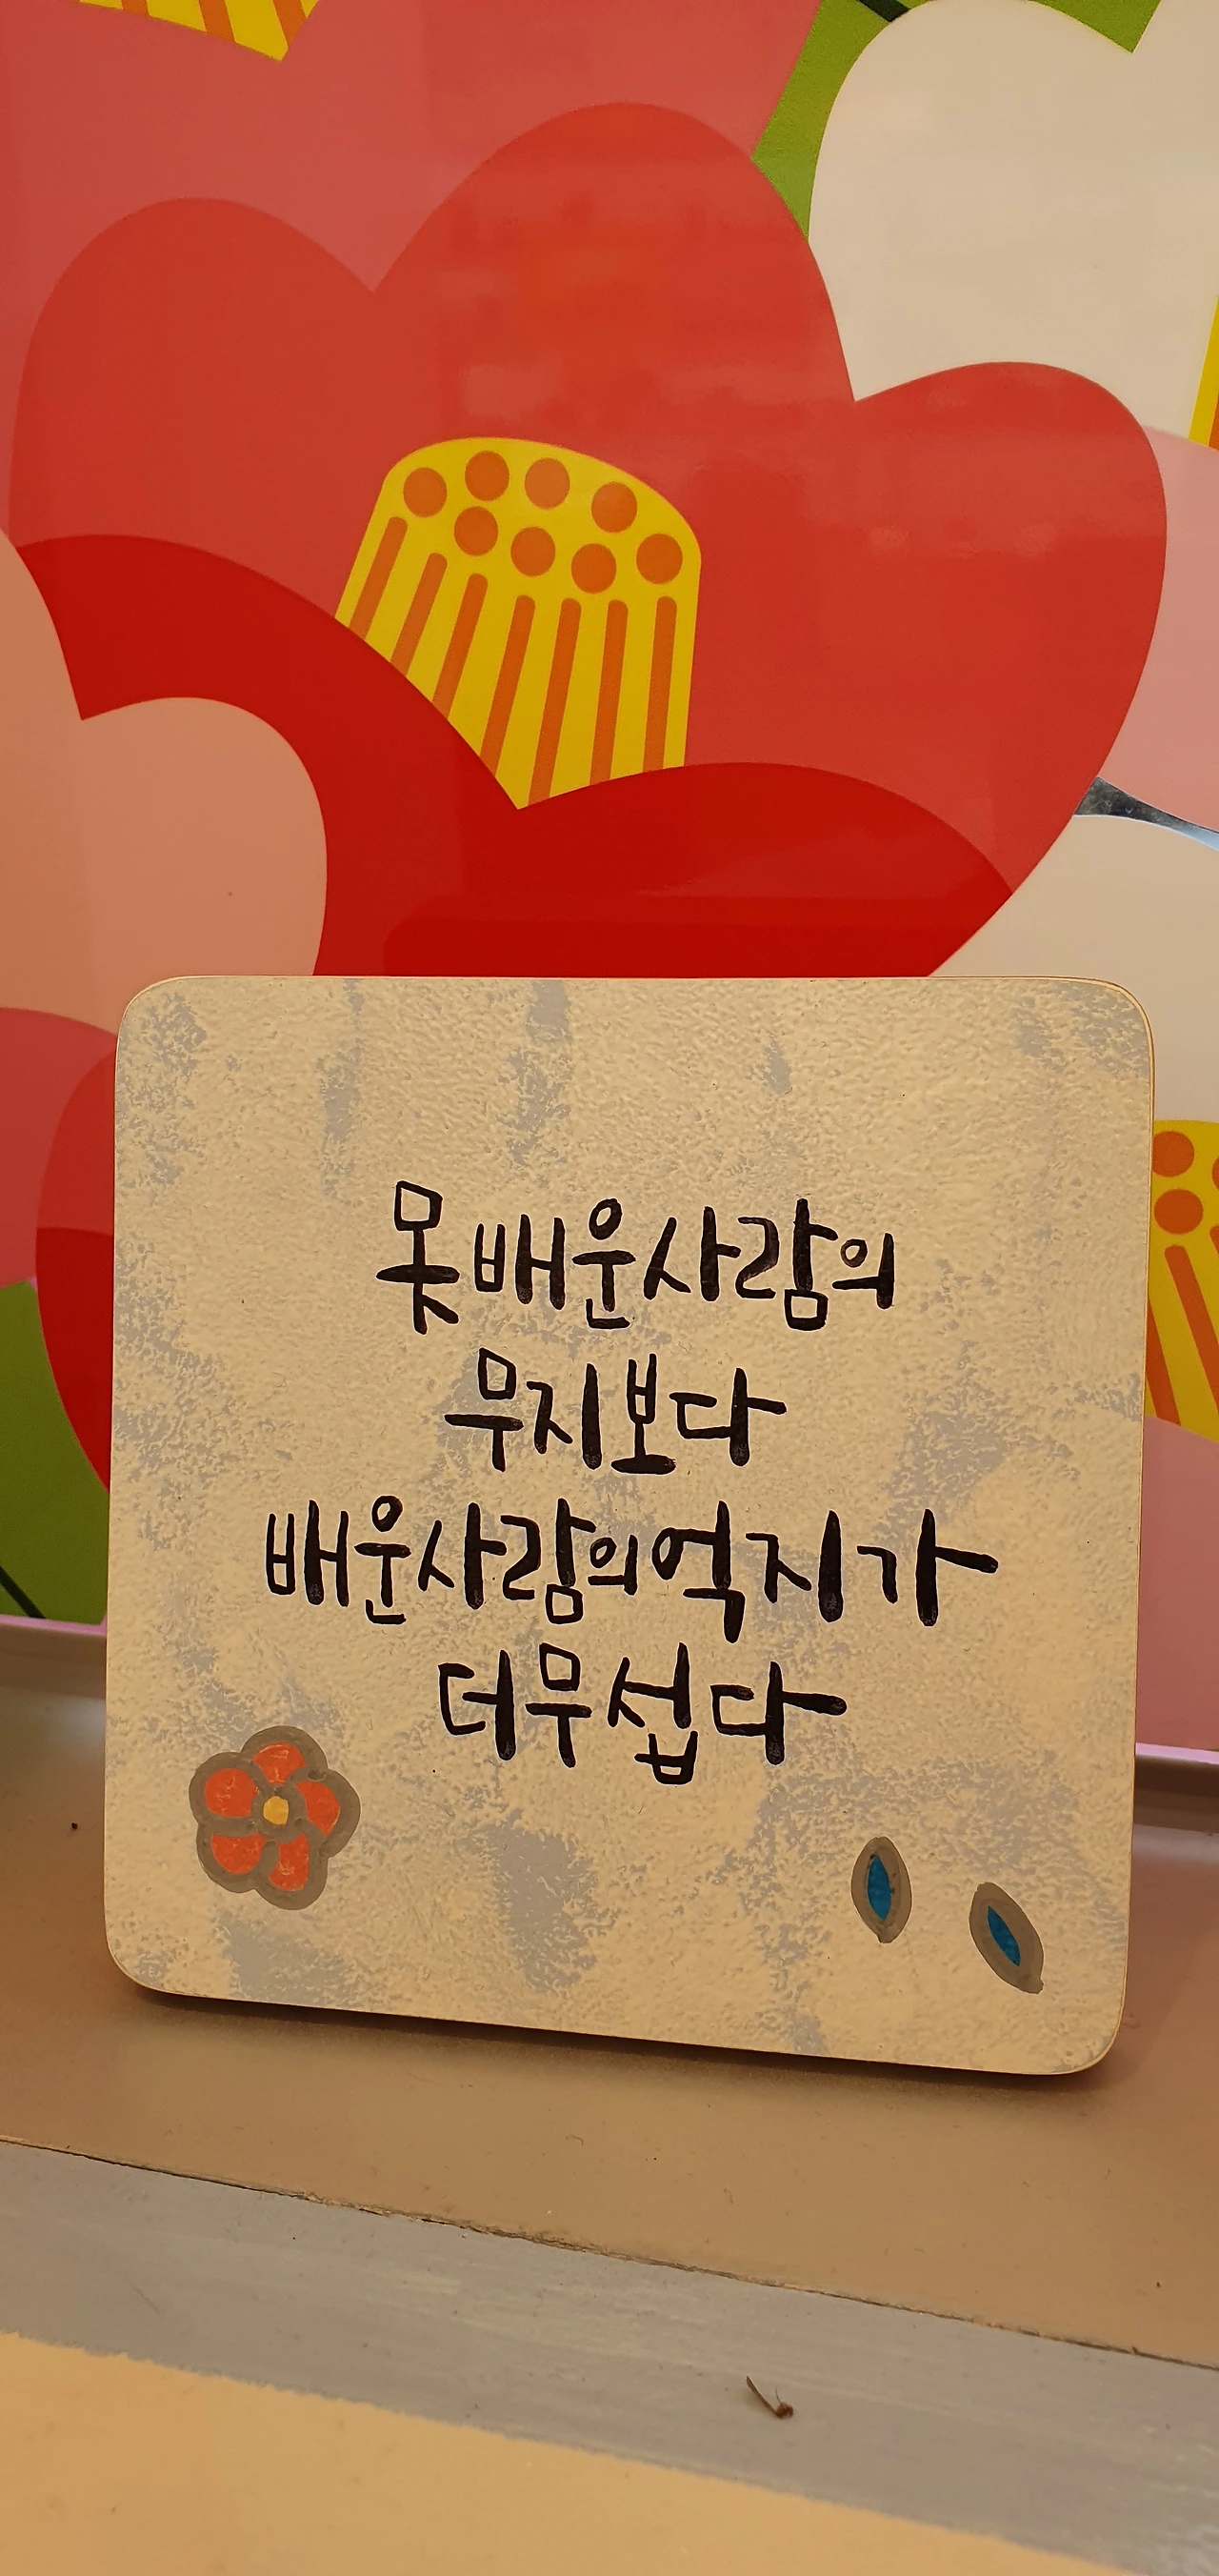 못배운사람의
무지보다
배운사람의억지가
더무섭다